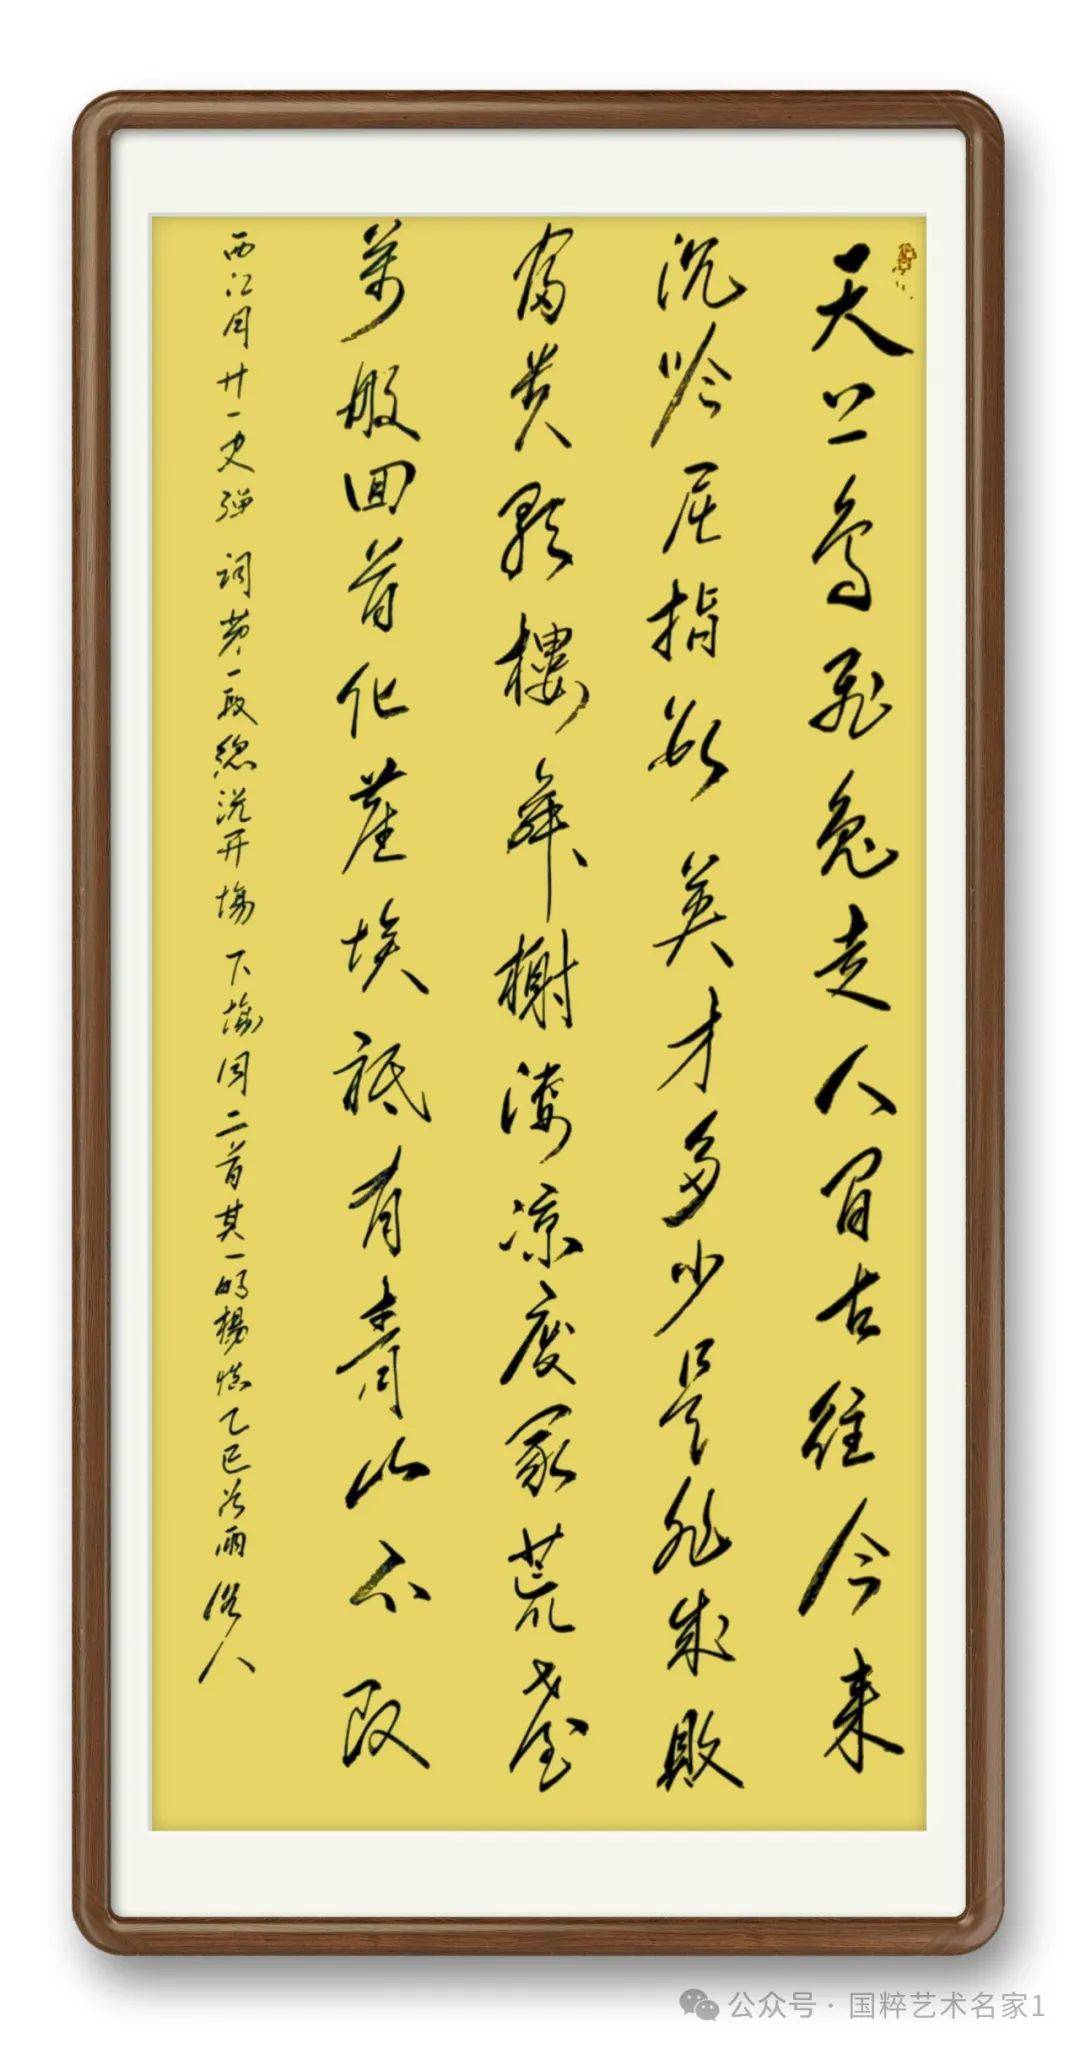 天上鸟飞兔走人间古往今来
沉吟屈指数英才多少是非成败
富贵歌樓舞榭凄凉废冢荒臺
萬般回首化尘埃祗有青山不改
西江月廿一史弹词第一段總说开場下场同二首其一明楊慎乙巳谷雨俗人
公众号·国粹艺术名家1